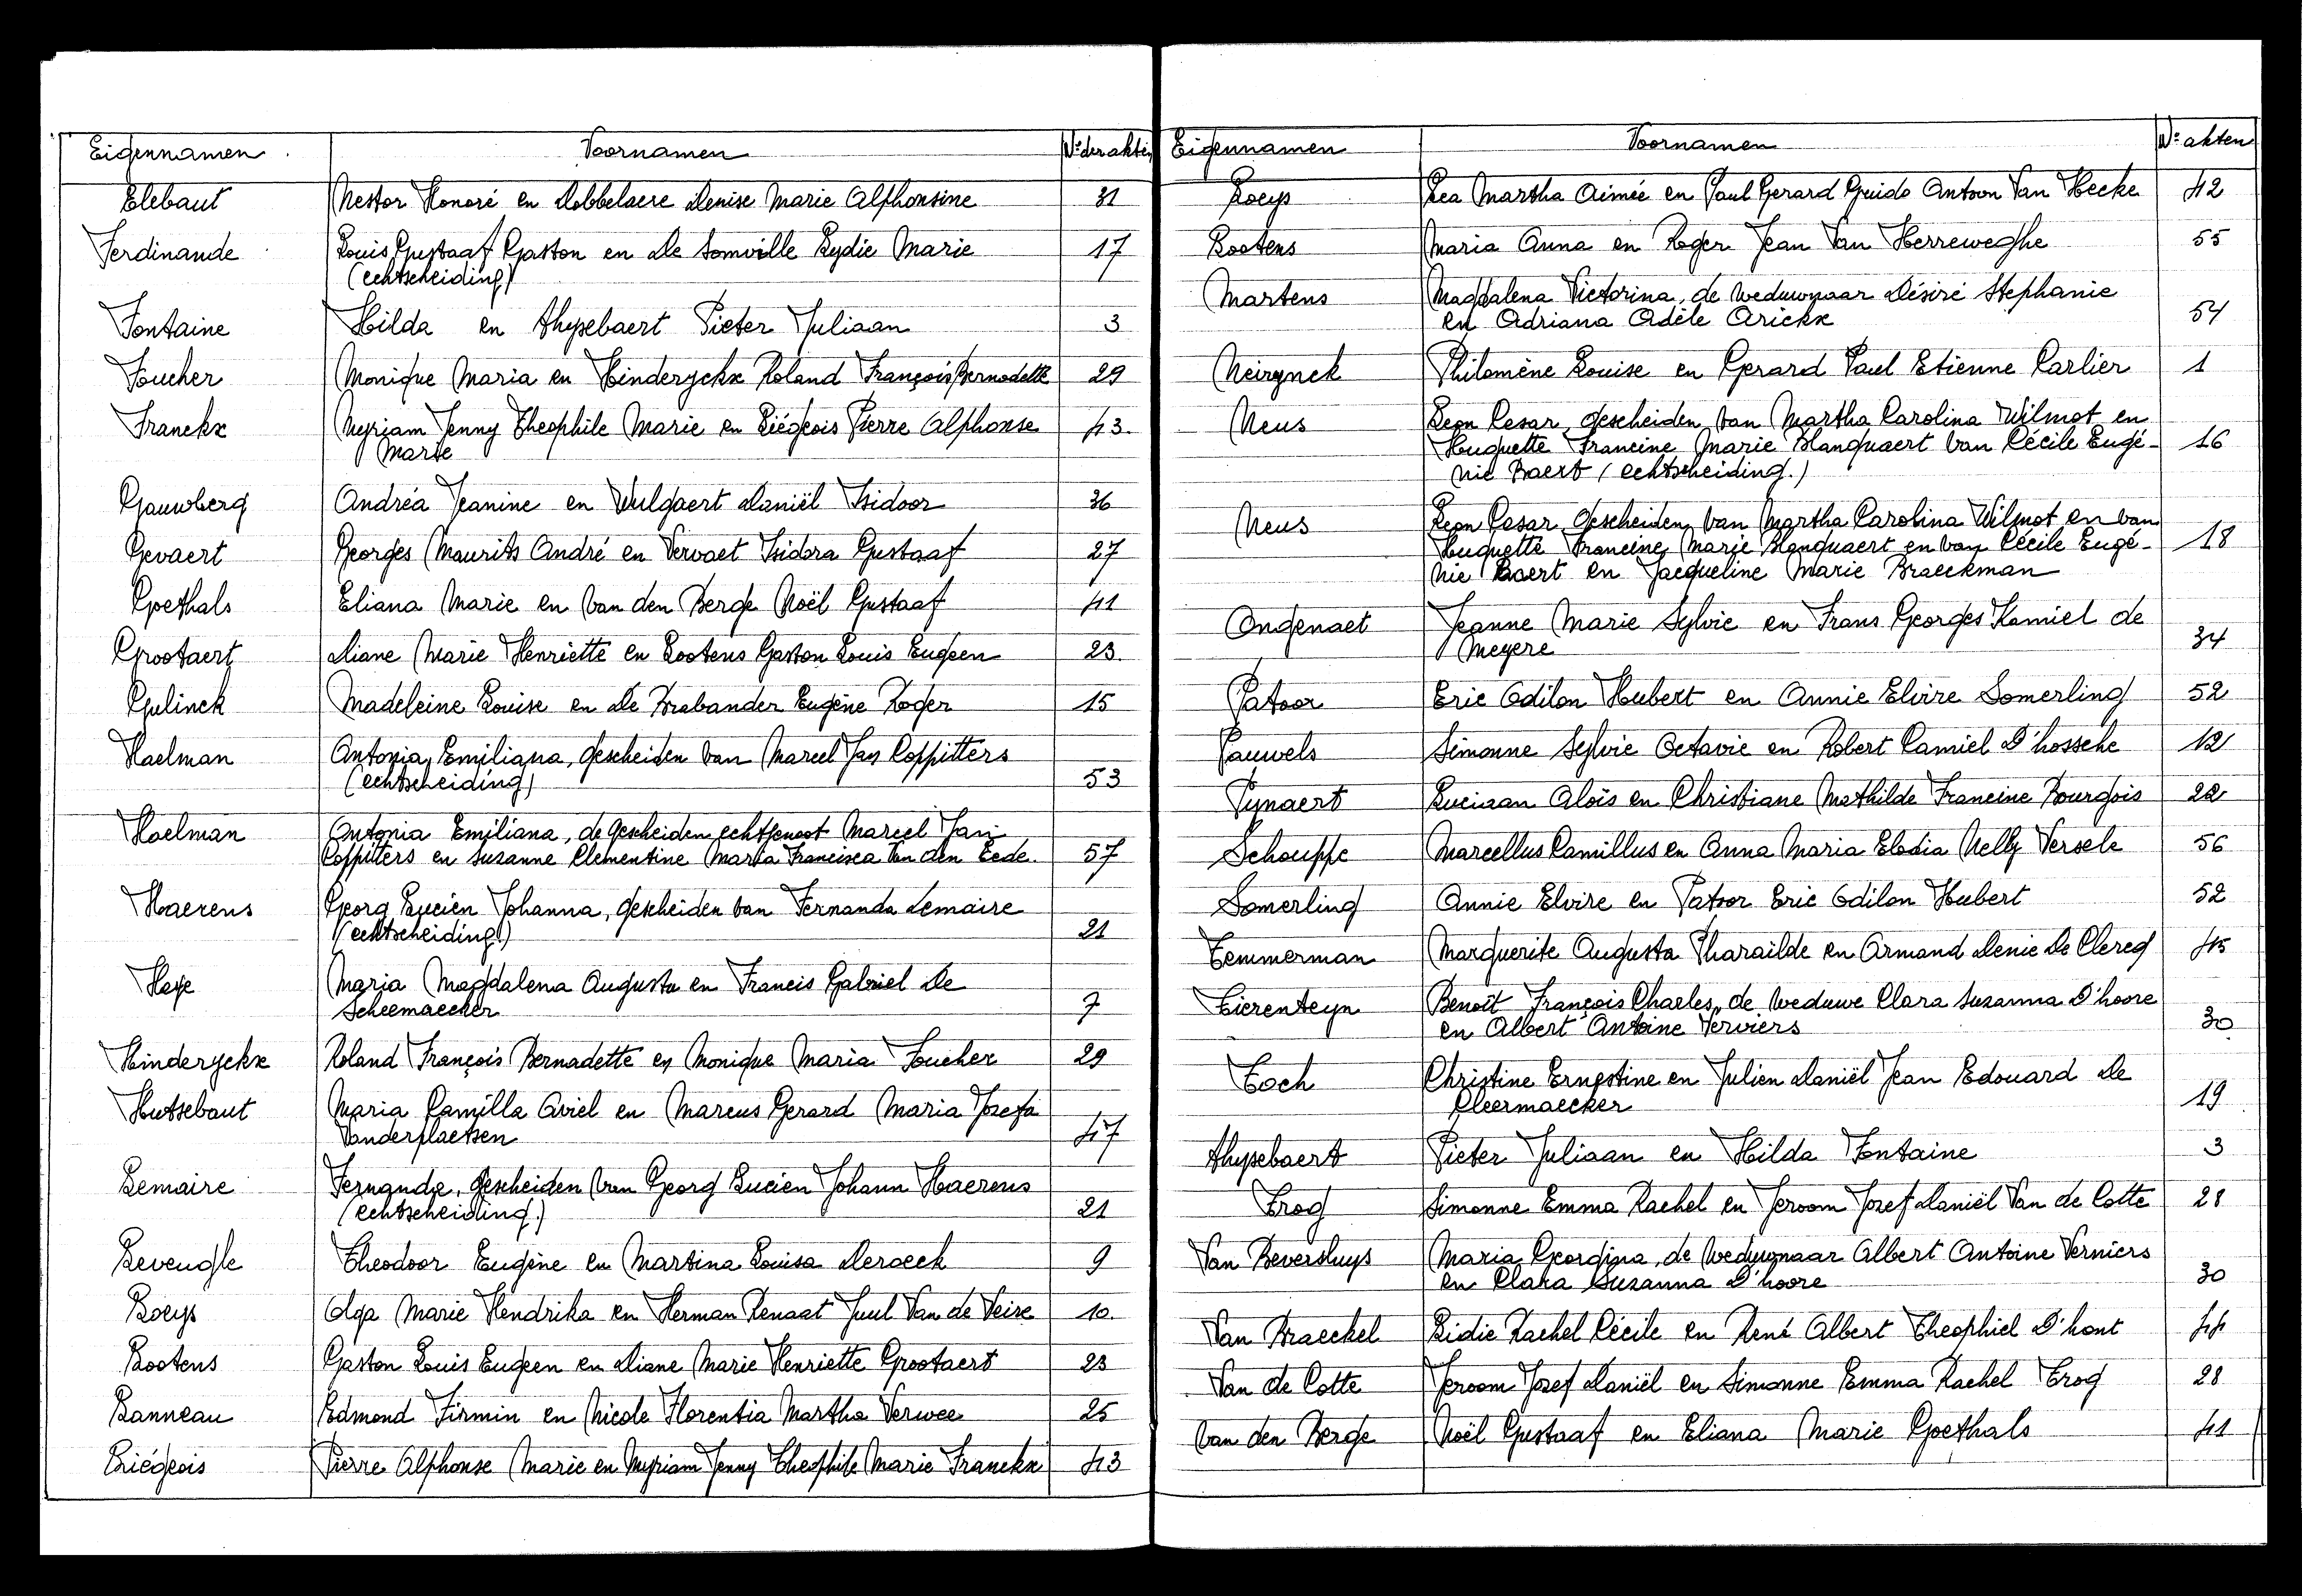 Eigennamen Voornamen Nr der akten
Elebaut Nestor Honoré en Dobbelaere Denise Marie Alphonsine 31
Ferdinande Louis Gustaaf Gaston en De Somville Lydie Marie 17
(echtscheiding)
Fontaine Hilda en Thysebaert Pieter Juliaan 3
Foucher Monique Maria en Hinderyckx Roland François Bernadette 29
Franckx Myriam Jenny Theophile Marie en Liégeois Pierre Alphonse 43.
Marie
Gauwberg Andréa Jeanine en Wulgaert Daniël Isidoor 36
Gevaert Georges Maurits André en Vervaet Isidora Gustaaf 27
Goethals Eliana Marie en Van den Berge Noël Gustaaf 41
Grootaert Diane Marie Henriette en Lootens Gaston Louis Eugeen 23
Gulinck Madeleine Louise en De Brabander Eugène Roger 15
Haelman Antonia Emiliana, gescheiden van Marcel Jan Coppitters
(echtscheiding) 53
Haelman Antonia Emiliana, de gescheiden echtgenoot Marcel Jan
Coppitters en Suzanne Clementine Maria Francisca Van den Eede. 57
Haerens Georg Lucien Johanna, gescheiden van Fernanda Lemaire
(echtscheiding.) 21
Heye Maria Magdalena Augusta en Francis Gabriel De
Scheemaecker 7
Hinderyckx Roland François Bernadette en Monique Maria Foucher 29
Hutsebaut Maria Camilla Aviel en Marcus Gerard Maria Jozefa
Vanderplaetsen 47
Lemaire Fernande, gescheiden van Georg Lucien Johann Haerens
(echtscheiding.) 21
Leveugle Theodoor Eugène en Martina Louisa Deroeck 9
Loeys Olga Marie Hendrika en Herman Renaat Juul Van de Veire 10.
Lootens Gaston Louis Eugeen en Diane Marie Henriette Grootaert 23
Lanneau Edmond Firmin en Nicole Florentia Martha Verwee 25
Liégeois Pierre Alphonse Marie en Myriam Jenny Theophile Marie Franckx 43
Eigennamen Voornamen Nr akten
Loeys Lea Martha Aimée en Paul Gerard Guido Antoon Van Hecke 42
Lootens Maria Anna en Roger Jean Van Herreweghe 55
Martens Magdalena Victorina, de weduwnaar Désiré Stephanie
en Adriana Adèle Arickx 54
Neirynck Philomène Louise en Gerard Paul Etienne Carlier 1
Neus Leon Cesar, gescheiden van Martha Carolina Wilmot en
Huguette Francine Marie Blanquaert van Cécile Eugé- 16
nie Baert (echtscheiding.)
Neus Leon Cesar, gescheiden van Martha Carolina Wilmot en van
Huguette Francine Marie Blanquaert en van Cécile Eugé- 18
nie Baert en Jacqueline Marie Braeckman
Ongenaet Jeanne Marie Sylvie en Frans Georges Kamiel de
Meyere 34
Patoor Eric Odilon Hubert en Annie Elvire Somerling 52
Pauwels Simonne Sylvie Octavie en Robert Camiel D'hossche 12
Pynaert Luciaan Aloïs en Christiane Mathilde Francine Bourgois 22
Schouppe Marcellus Camillus en Anna Maria Elodia Nelly Versele 56
Somerling Annie Elvire en Patoor Eric Odilon Hubert 52
Temmerman Marguerite Augusta Pharailde en Armand Denie De Clercq 45
Tierenteyn Benoît François Charles, de weduwe Clara Suzanna D'hoore
en Albert Antoine Verviers 30
Toch Christine Ernestine en Julien Daniël Jean Edouard De
Cleermaecker 19
Thysebaert Pieter Juliaan en Hilda Fontaine 3
Trog Simonne Emma Rachel en Jeroom Jozef Daniël Van de Cotte 28
Van Beversluys Maria Georgina, de weduwnaar Albert Antoine Verniers
en Clara Suzanna D'hoore 30
Van Braeckel Lidie Rachel Cécile en René Albert Theophiel D'hont 44
Van de Cotte Jeroom Jozef Daniël en Simonne Emma Rachel Trog 28
Van den Berge Noël Gustaaf en Eliana Marie Goethals 41